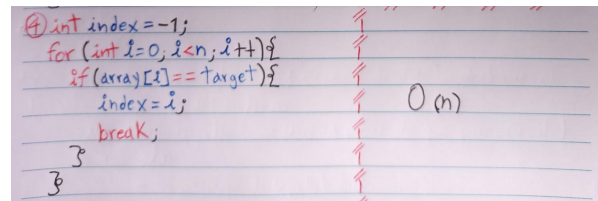 ④ int index = -1;
for (int i=0; i<n; i++){
if (array[i] == target){
index = i;
break;
O(n)
}
}